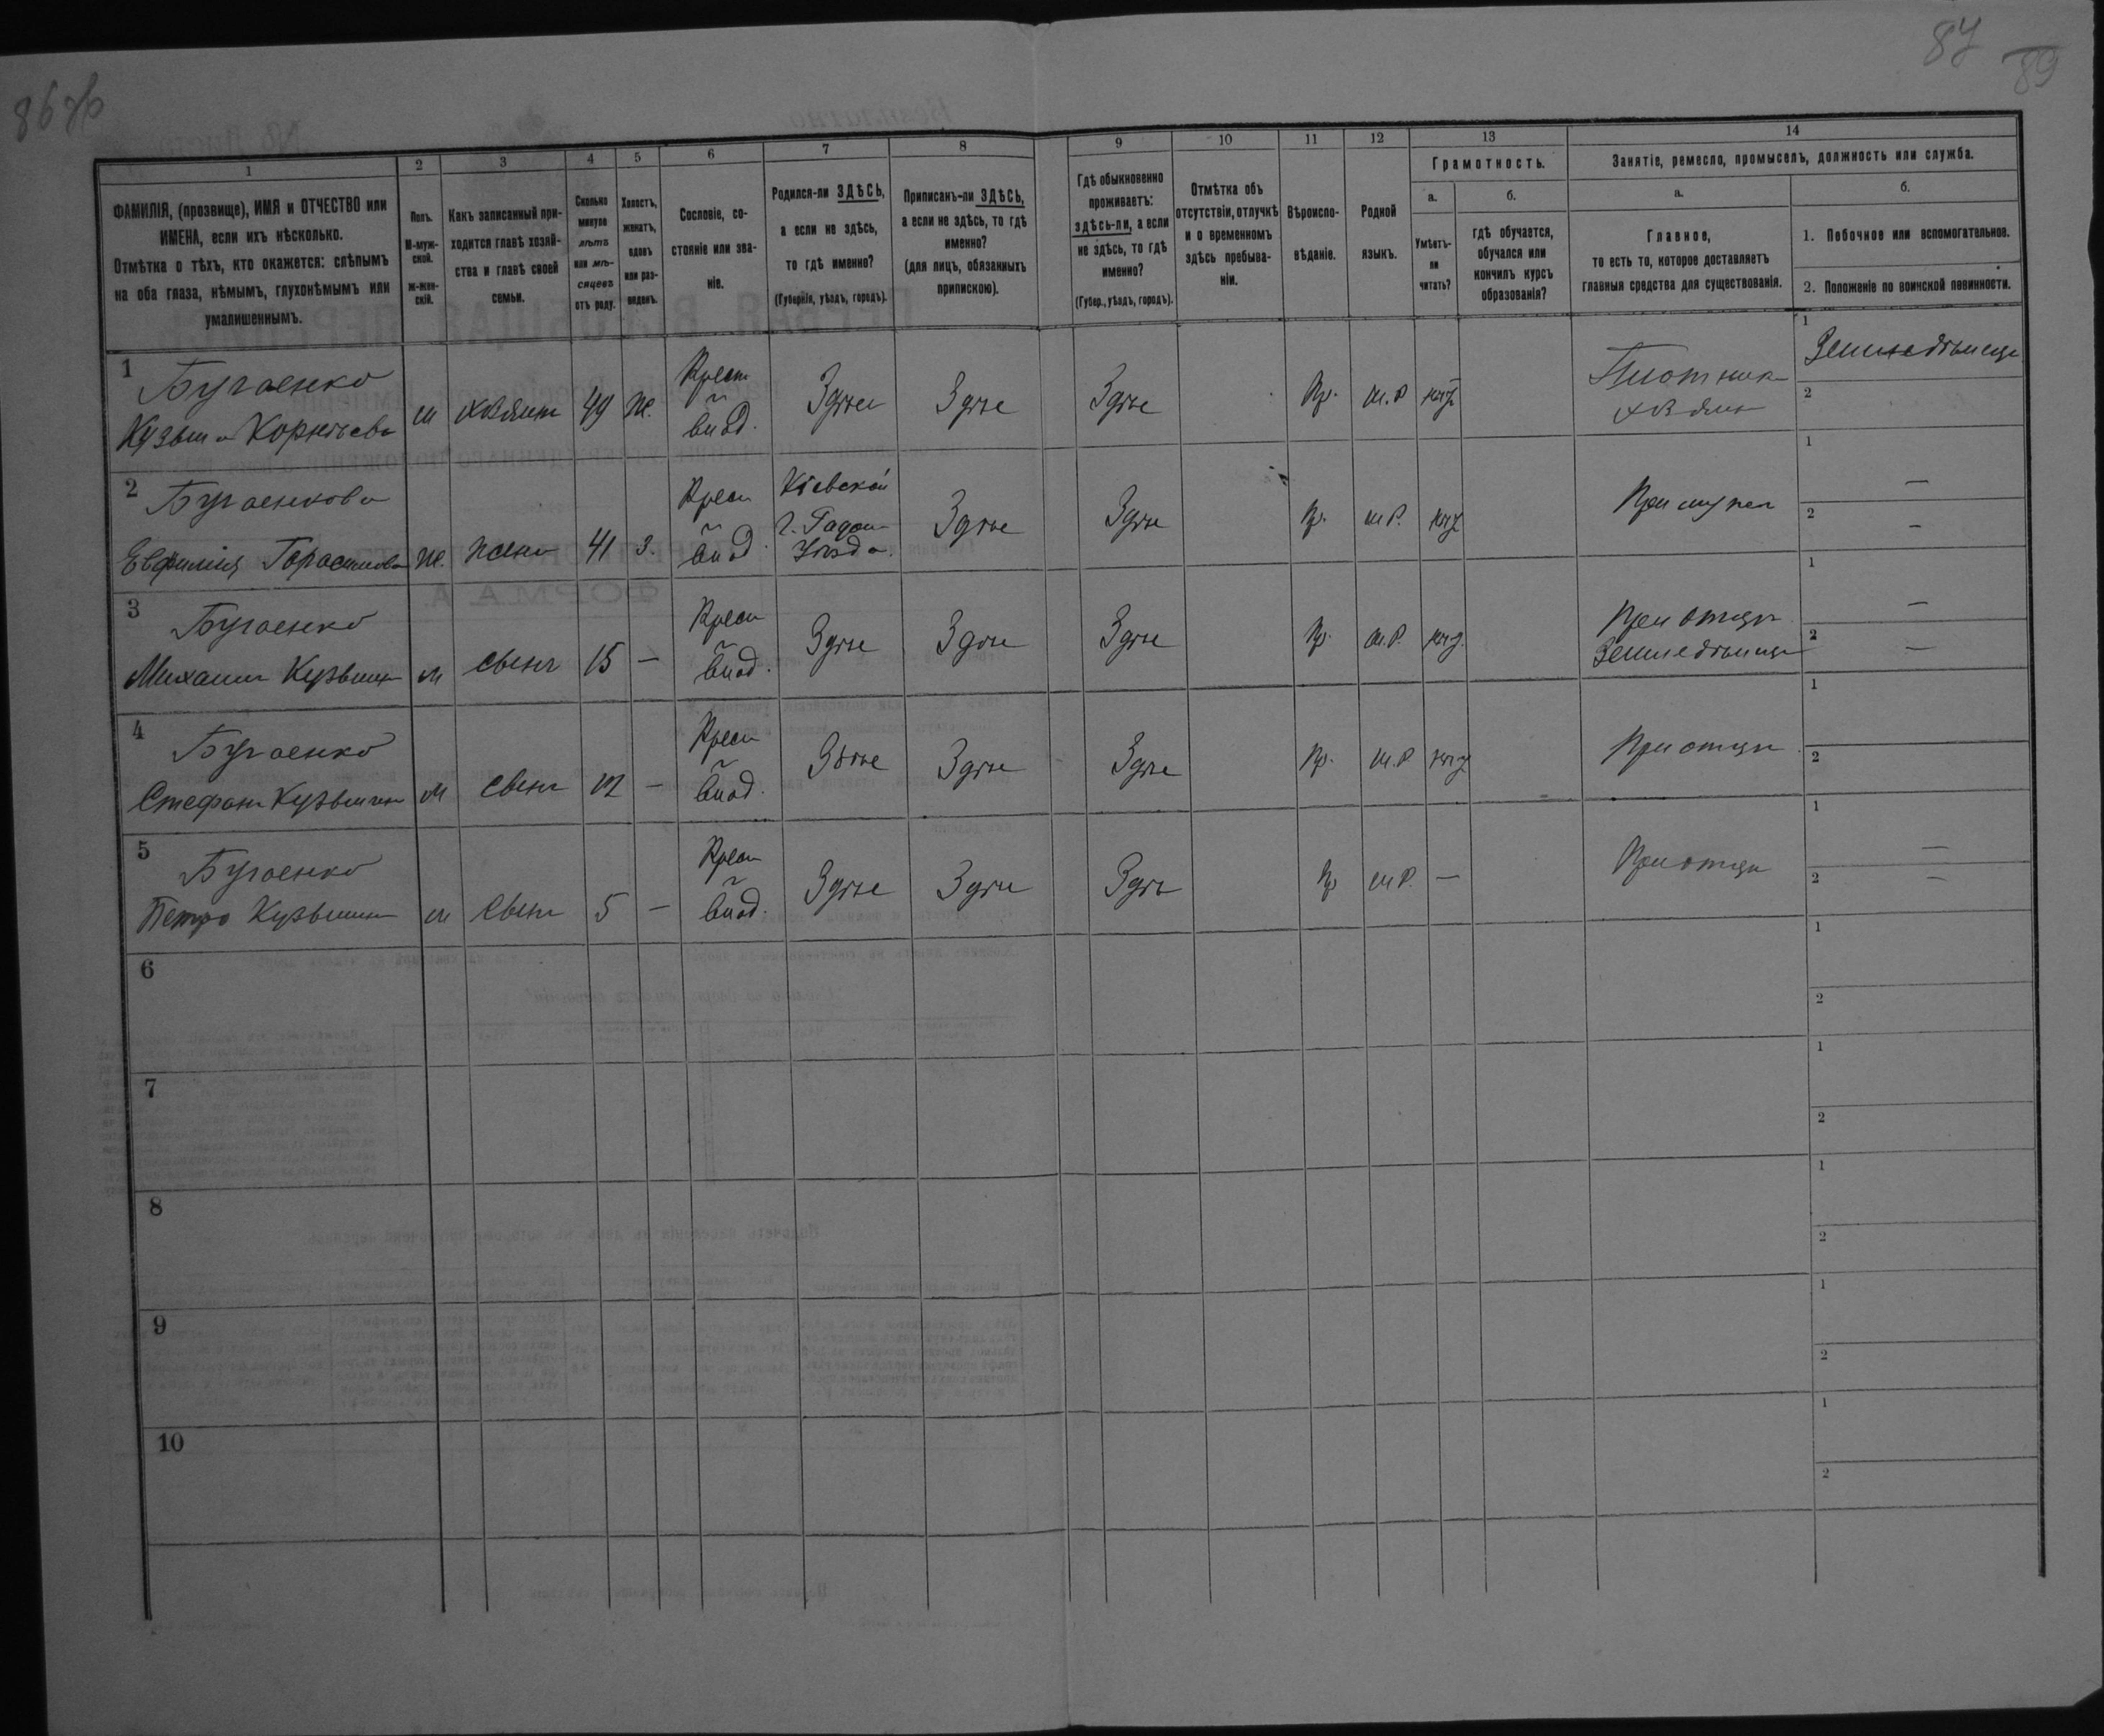 86 об
87
89
1
2
3
4
5
6
7
8
9
10
11
12
13
14
ФАМИЛІЯ, (прозвище), ИМЯ и ОТЧЕСТВО или
ИМЕНА, если ихъ нѣсколько.
Отмѣтка о тѣхъ, кто окажется: слѣпымъ
на оба глаза, нѣмымъ, глухонѣмымъ или
умалишеннымъ.
Полъ.
М-муж-
ской.
Ж-жен-
скій.
Какъ записанный при-
ходится главѣ хозяй-
ства и главѣ своей
семьи.
Сколько
минуло
лѣтъ
или мѣ-
сяцевъ
отъ роду.
Холостъ,
женатъ,
вдовъ
или раз-
веденъ.
Сословіе, со-
стояніе или зва-
ніе.
Родился-ли ЗДѢСЬ,
а если не здѣсь,
то гдѣ именно?
(Губернія, уѣздъ, городъ).
Приписанъ-ли ЗДѢСЬ,
а если не здѣсь, то гдѣ
именно?
(для лицъ, обязанныхъ
припискою).
Гдѣ обыкновенно
проживаетъ:
здѣсь-ли, а если
не здѣсь, то гдѣ
именно?
(Губер., уѣздъ, городъ).
Отмѣтка объ
отсутствіи, отлучкѣ
и о временномъ
здѣсь пребыва-
ніи.
Вѣроиспо-
вѣданіе.
Родной
языкъ.
Грамотность.
а.
Умѣетъ-
ли
читать?
б.
гдѣ обучается,
обучался или
кончилъ курсъ
образованія?
Занятіе, ремесло, промыселъ, должность или служба.
а.
Главное,
то есть то, которое доставляетъ
главныя средства для существованія.
б.
1. Побочное или вспомогательное.
2. Положеніе по воинской повинности.
1
Бугаенко
Кузьма Корнѣевъ
м хозяинъ 49 ж.
Крест
влад.
Здѣсь Здѣсь Здѣсь
Пр. м.р нѣтъ
Плотникъ
хозяинъ
1
Земледѣлецъ
2
2
Бугаенкова
Евфимія Горасимова
ж. жена 41 з.
Крест
влад.
Кіевской
г.
Уѣзда.
Здѣсь Здѣсь
Пр. м.р. нѣтъ
При мужѣ
1 —
2 —
3
Бугаенко
Михаилъ Кузьминъ
м сынъ 15 —
Крест
влад.
Здѣсь Здѣсь Здѣсь
Пр. м.р. нѣтъ
При отцѣ
Земледѣлецъ
1 —
2 —
4
Бугаенко
Стефанъ Кузьминъ
м сынъ 12 —
Крест
влад.
Здѣсь Здѣсь Здѣсь
Пр. м.р нѣтъ
При отцѣ
1
2
5
Бугаенко
Петро Кузьминъ
м сынъ 5 —
Крест
влад.
Здѣсь Здѣсь Здѣсь
Пр м.р. —
При отцѣ
1 —
2 —
6
1
2
7
1
2
8
1
2
9
1
2
10
1
2